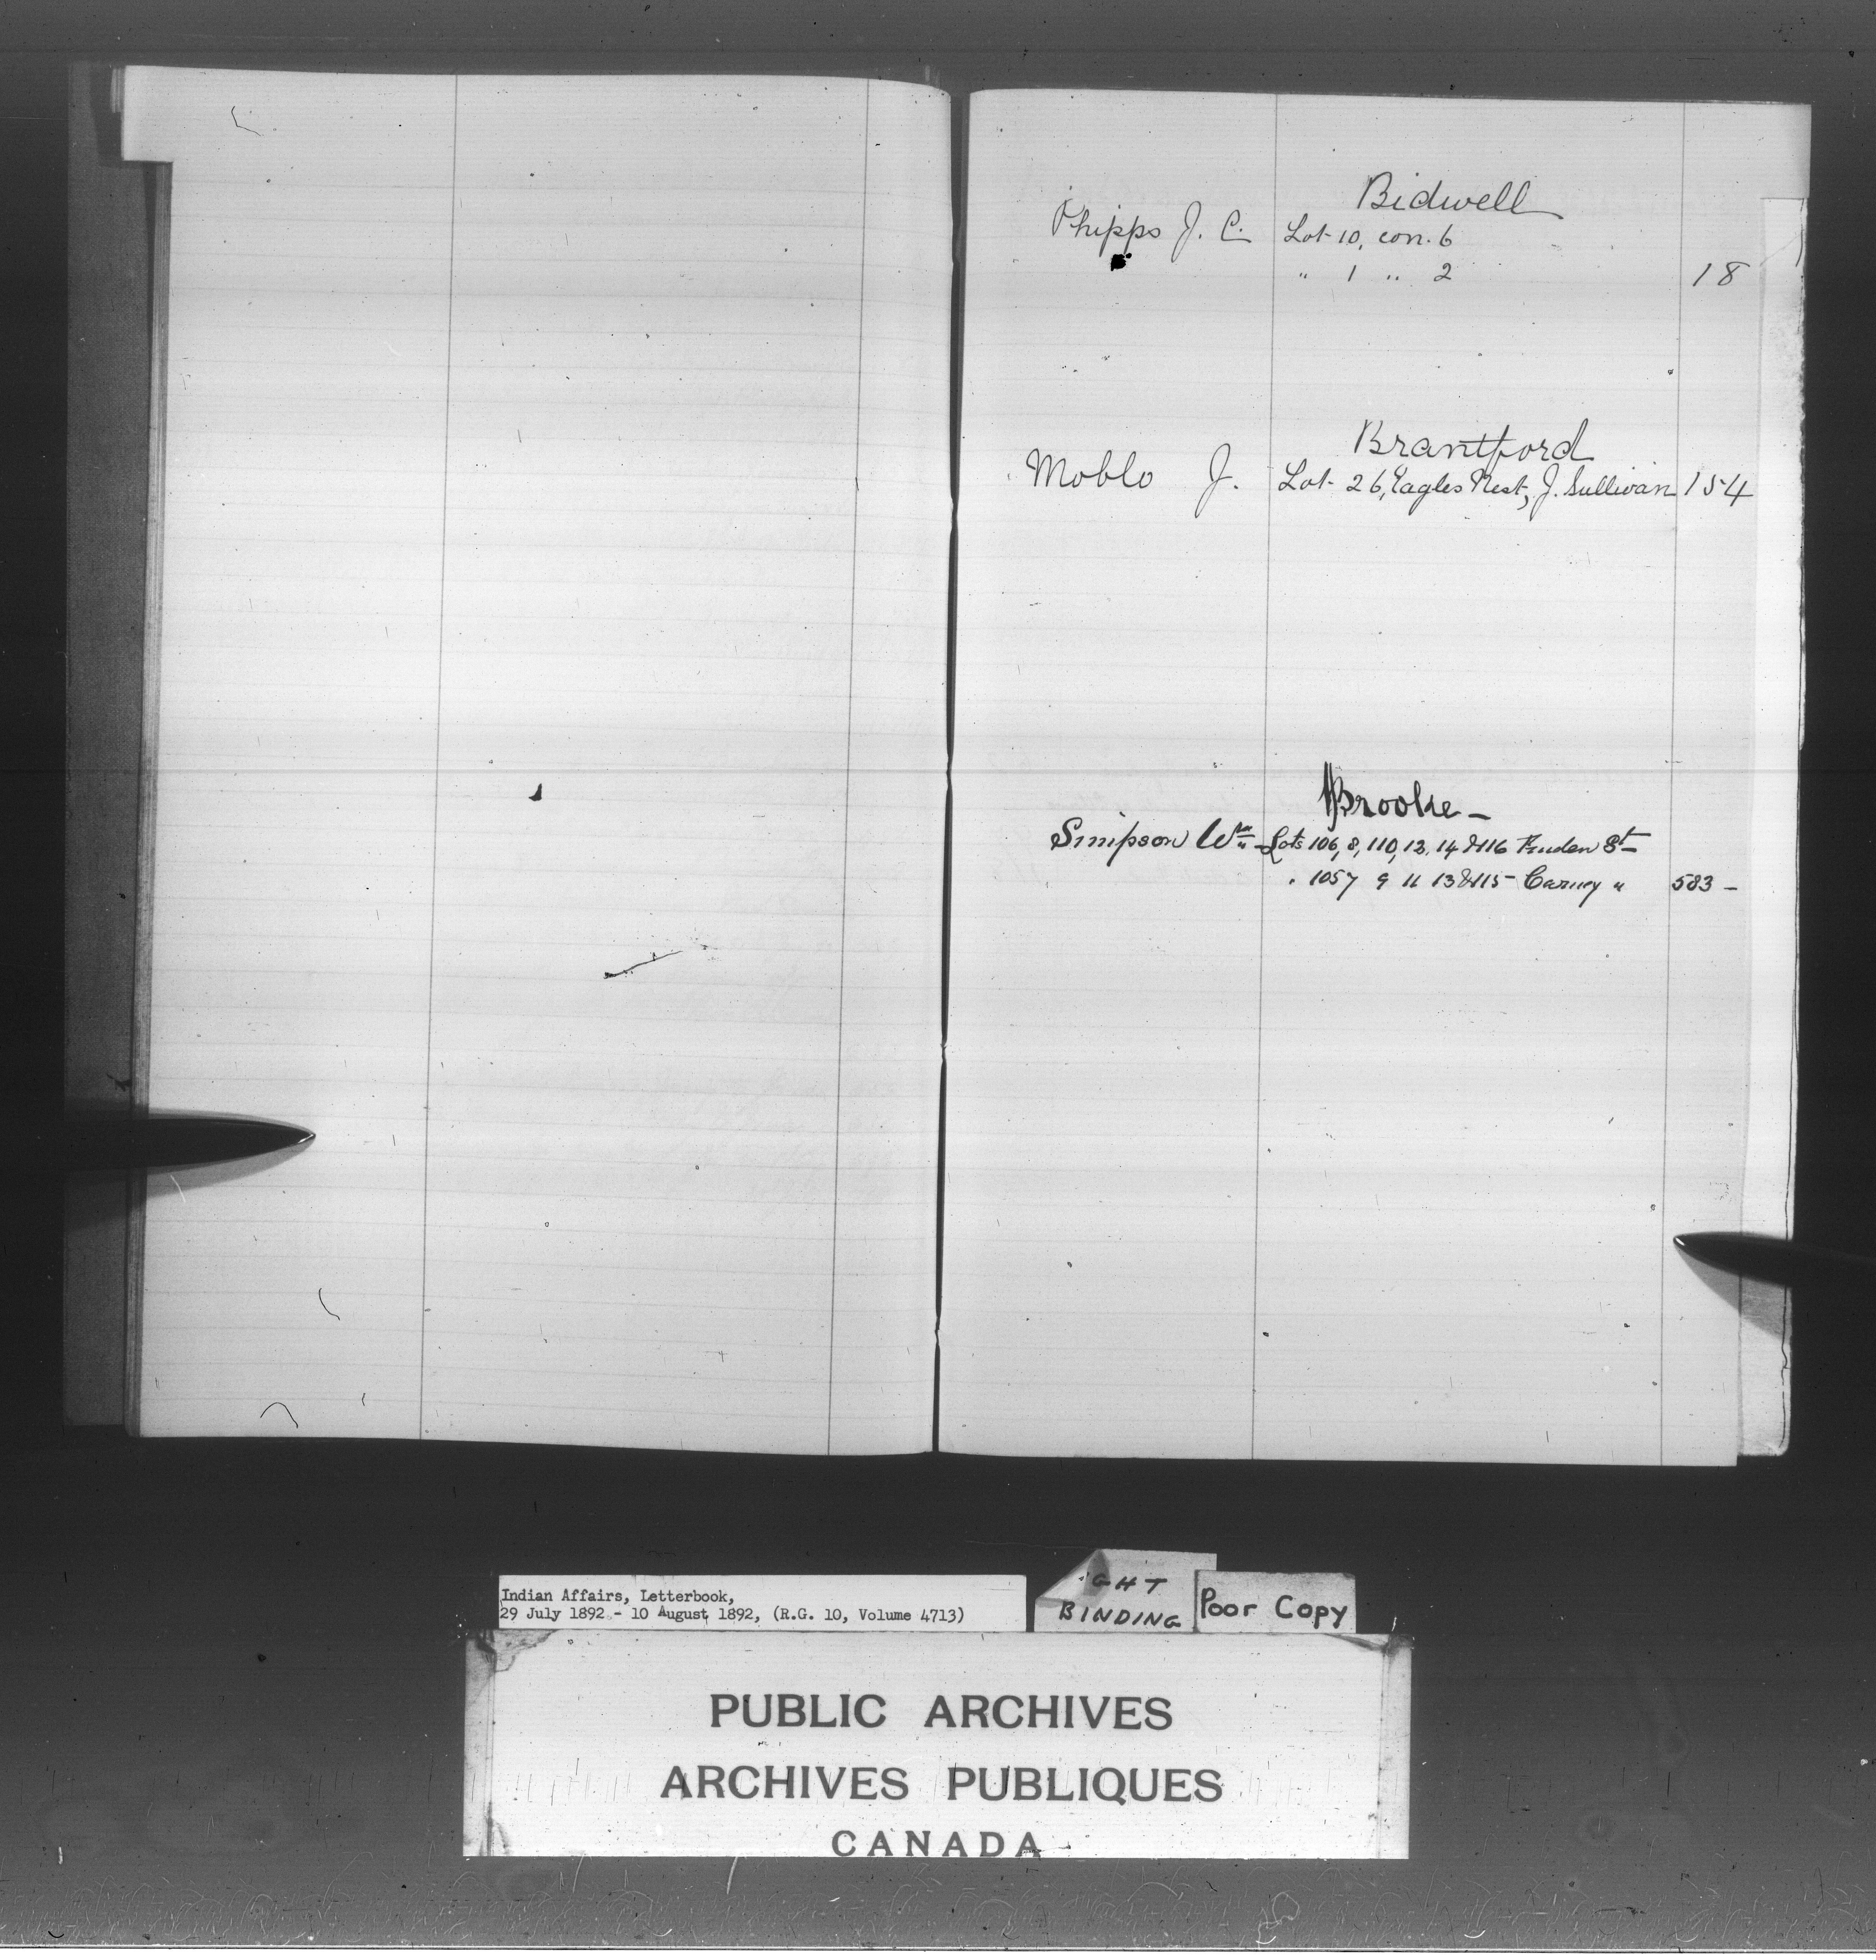 Bidwell
Phipps J. C. Lot 10, con. 6
" 1 " 2 18
Brantford
Moblo J. Lot 26, Eagles Nest, J. Sullivan 154
Brooke -
Simpson Wm - Lots 106, 8, 110, 12, 14 & 116 St -
" 105 7 9 11 13 & 115 - Carney " 583 -
Indian Affairs, Letterbook,
29 July 1892 - 10 August 1892, (R.G. 10, Volume 4713)
IGHT
BINDING
Poor Copy
PUBLIC ARCHIVES
ARCHIVES PUBLIQUES
CANADA